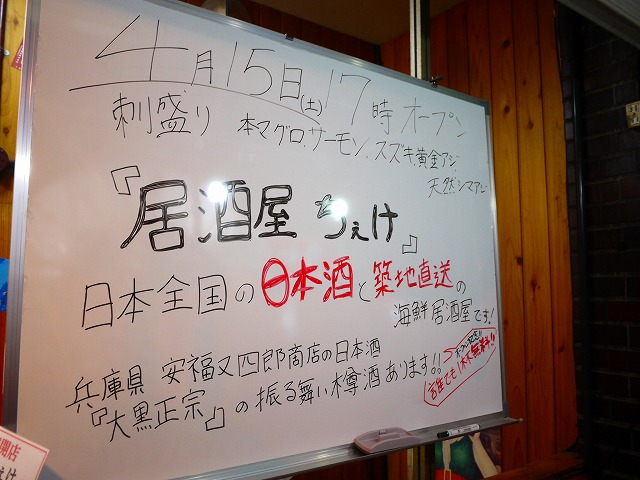 4月15日(土)17時オープン
刺盛り 本マグロ、サーモン、スズキ、黄金アジ
天然シマアジ
『居酒屋 ちぇけ』
日本全国の日本酒と築地直送の
海鮮居酒屋です!
兵庫県 安福又四郎商店の日本酒
『大黒正宗』の振る舞い樽酒あります!!
誰でも1杯無料!!
開店